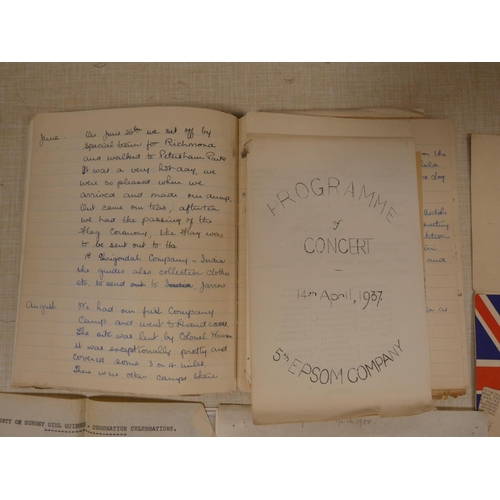 June. On June 26th we set off by
special train for Richmond
and walked to Petersham Park
It was a very hot day, we
were so pleased when we
arrived and made our dump.
Out came our teas, after tea
we had the passing of the
Flag Ceremony, the flag was
to be sent out to the
1st Company - India
The guides also collection clothes
etc. to send out to Jarrow
August. We had our full Company
Camp and went to
The site was lent by Colonel
it was exceptionally pretty and
covered some 3 or 4 miles.
There were other camps there
PROGRAMME
of
CONCERT
14th April, 1937.
5th EPSOM COMPANY
the
day
and
as
OF SURREY GIRL GUIDES - CORONATION CELEBRATIONS.